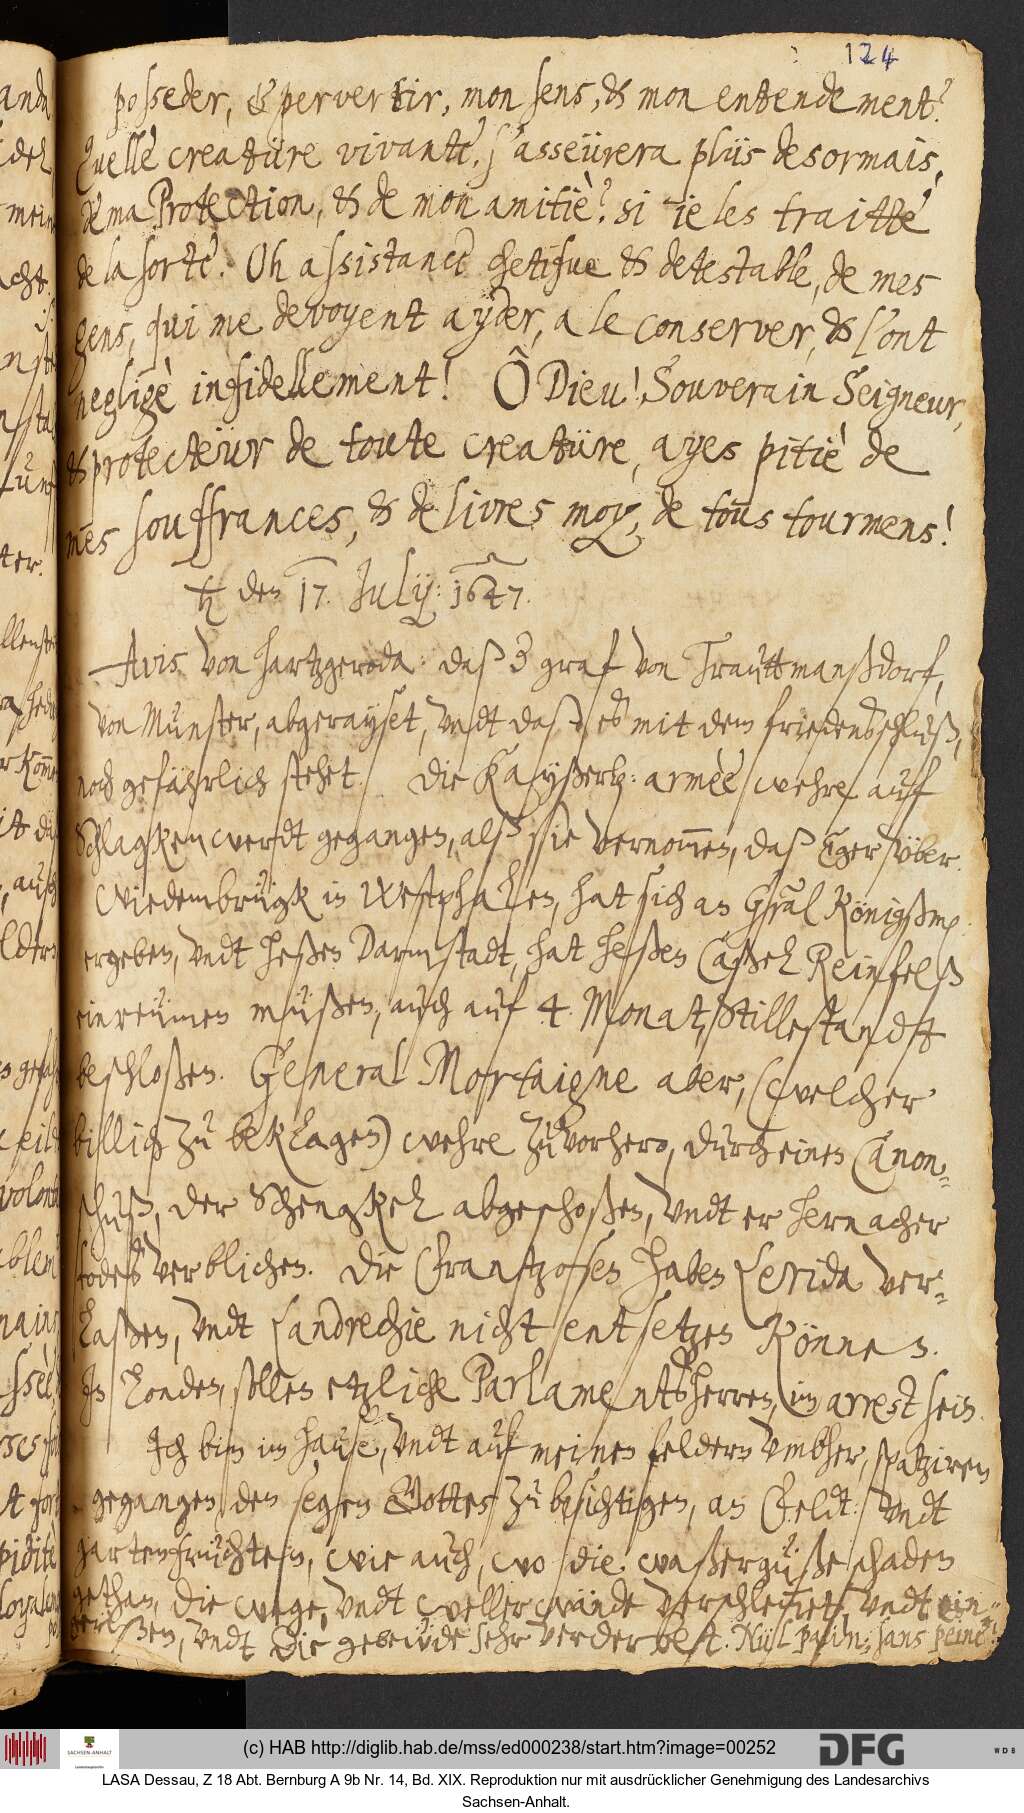 124
posseder, & pervertir, mon sens, & mon entendement?
Quelle creatüre vivante, s'asseürera plüs desormais,
de ma Protection, & de mon amitiè? si ie les traitte
de la sorte. Oh assistance chetifue & detestable, de mes
gens, qui me devoyent ayder, a le conserver, & l'ont
negligè infidellement! Ô Dieu! Souverain Seigneur,
& protecteür de toute creatüre, ayes pitiè de
mes souffrances, & delivres moy, de tous tourmens!
♄ den 17. Julij: 1647.
Avis von Hartzgeroda: daß der graf von Trauttmanßdorf,
von Münster, abgerayset, vndt daß es mit dem friedensschluß,
noch gefährlich stehet. Die Kayßerl: armèè wehre auf
Schlagkenwerdt gegangen, alß sie vernommen, daß Eger über.
Wiedembrügk in Westphalen, hat sich an Gral Königßm:
ergeben, vndt Heßen Darmstadt, hat Heßen Caßel Reinfelß
einreümen müßen, auch auf 4 Monat, Stillestandt
beschloßen. General Mortaigne aber, (welcher
billich zu beklagen) wehre zuvorhero, durch einen Canon-
schuß, der Schengkel abgeschoßen, vndt er hernacher
todeß verblichen. Die Frantzosen haben Lerida ver-
laßen, vndt Landrechie nicht entsetzen können.
In Londen, sollen etzliche Parlamentsherren, im arrest sein.
Ich bin im hause, vndt auf meinen feldern vmbher, spatziren
gegangen, den segen Gottes zu besichtigen, an Feldt: vndt
gartenfrüchten, wie auch, wo die waßergüße schaden
gethan, die wege, vndt weller wände verschlemmet, vndt ein-
gerißen, vndt die gebeüde sehr verderbest. Nül pain, sans peine!
(c) HAB http://diglib.hab.de/mss/ed000238/start.htm?image=00252
SACHSEN-ANHALT
DFG
WDB
LASA Dessau, Z 18 Abt. Bernburg A 9b Nr. 14, Bd. XIX. Reproduktion nur mit ausdrücklicher Genehmigung des Landesarchivs
Sachsen-Anhalt.